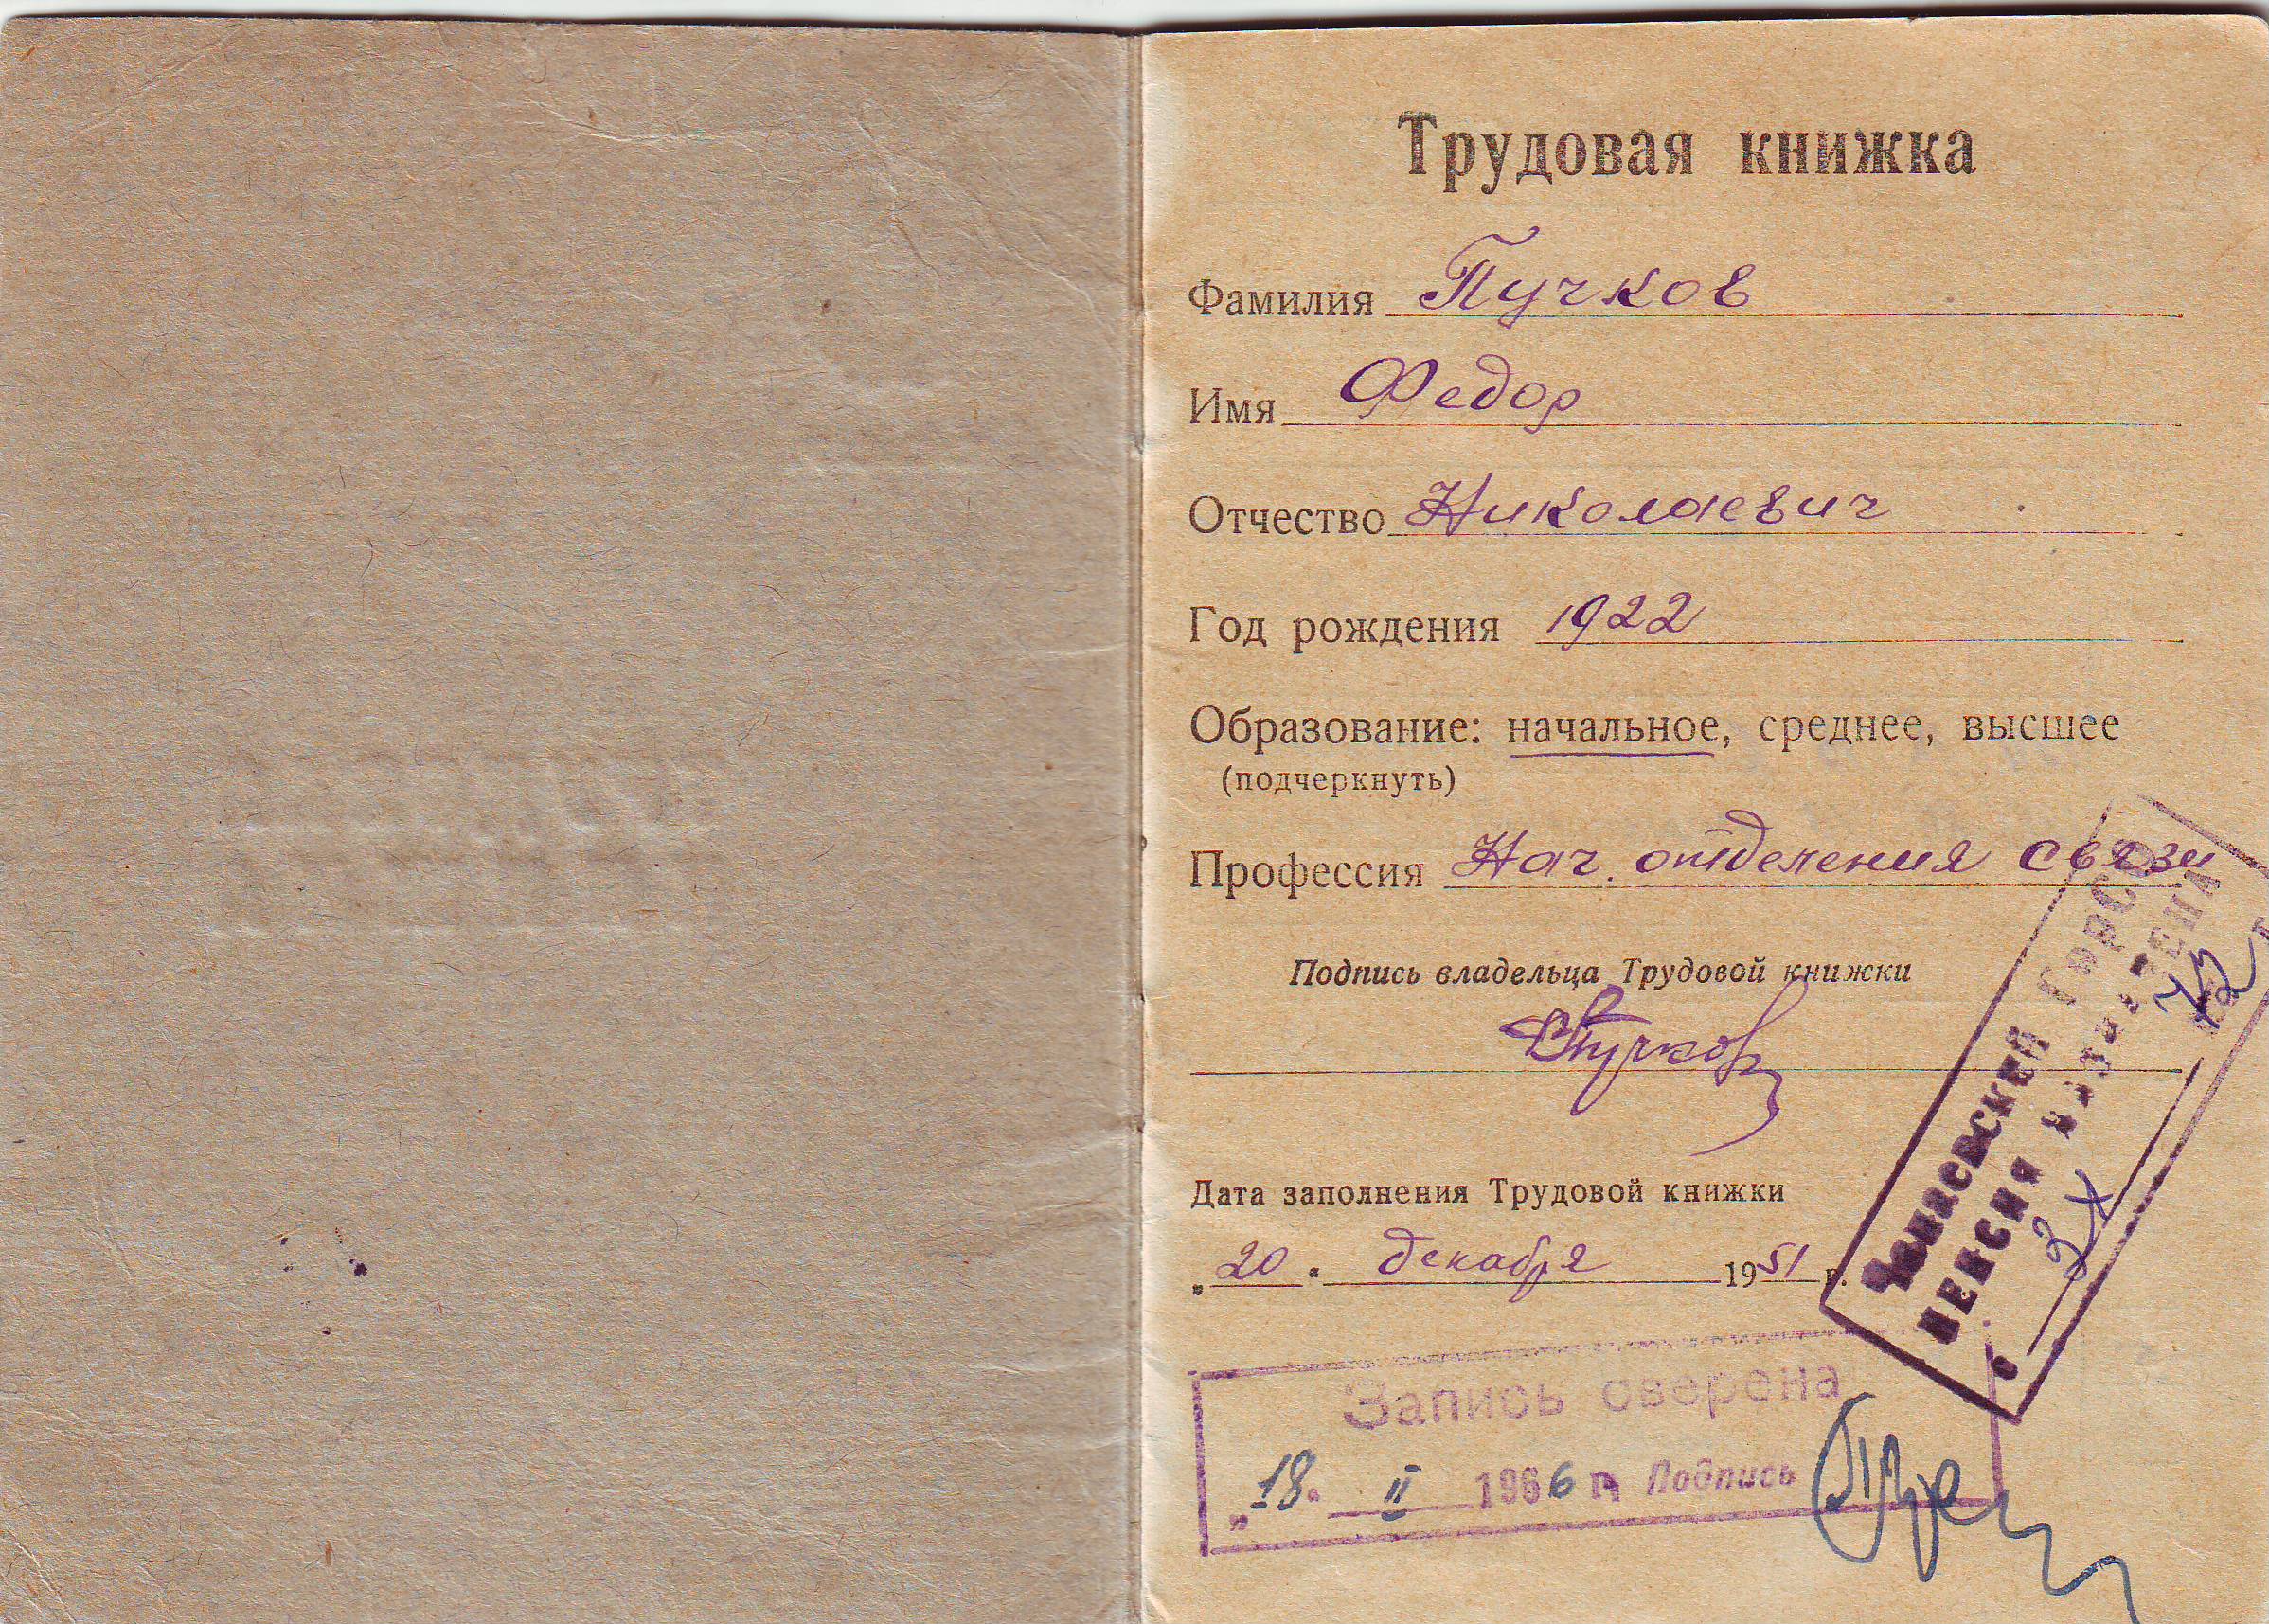 Трудовая книжка
Фамилия Пучков
Имя Федор
Отчество Николаевич
Год рождения 1922
Образование: начальное, среднее, высшее
(подчеркнуть)
Профессия Нач. отделения связи
Подпись владельца Трудовой книжки
Пучков
Дата заполнения Трудовой книжки
„20" декабря 1951 г.
ПЕНСИЯ
Запись сверена
„18" II 1966 г. Подпись